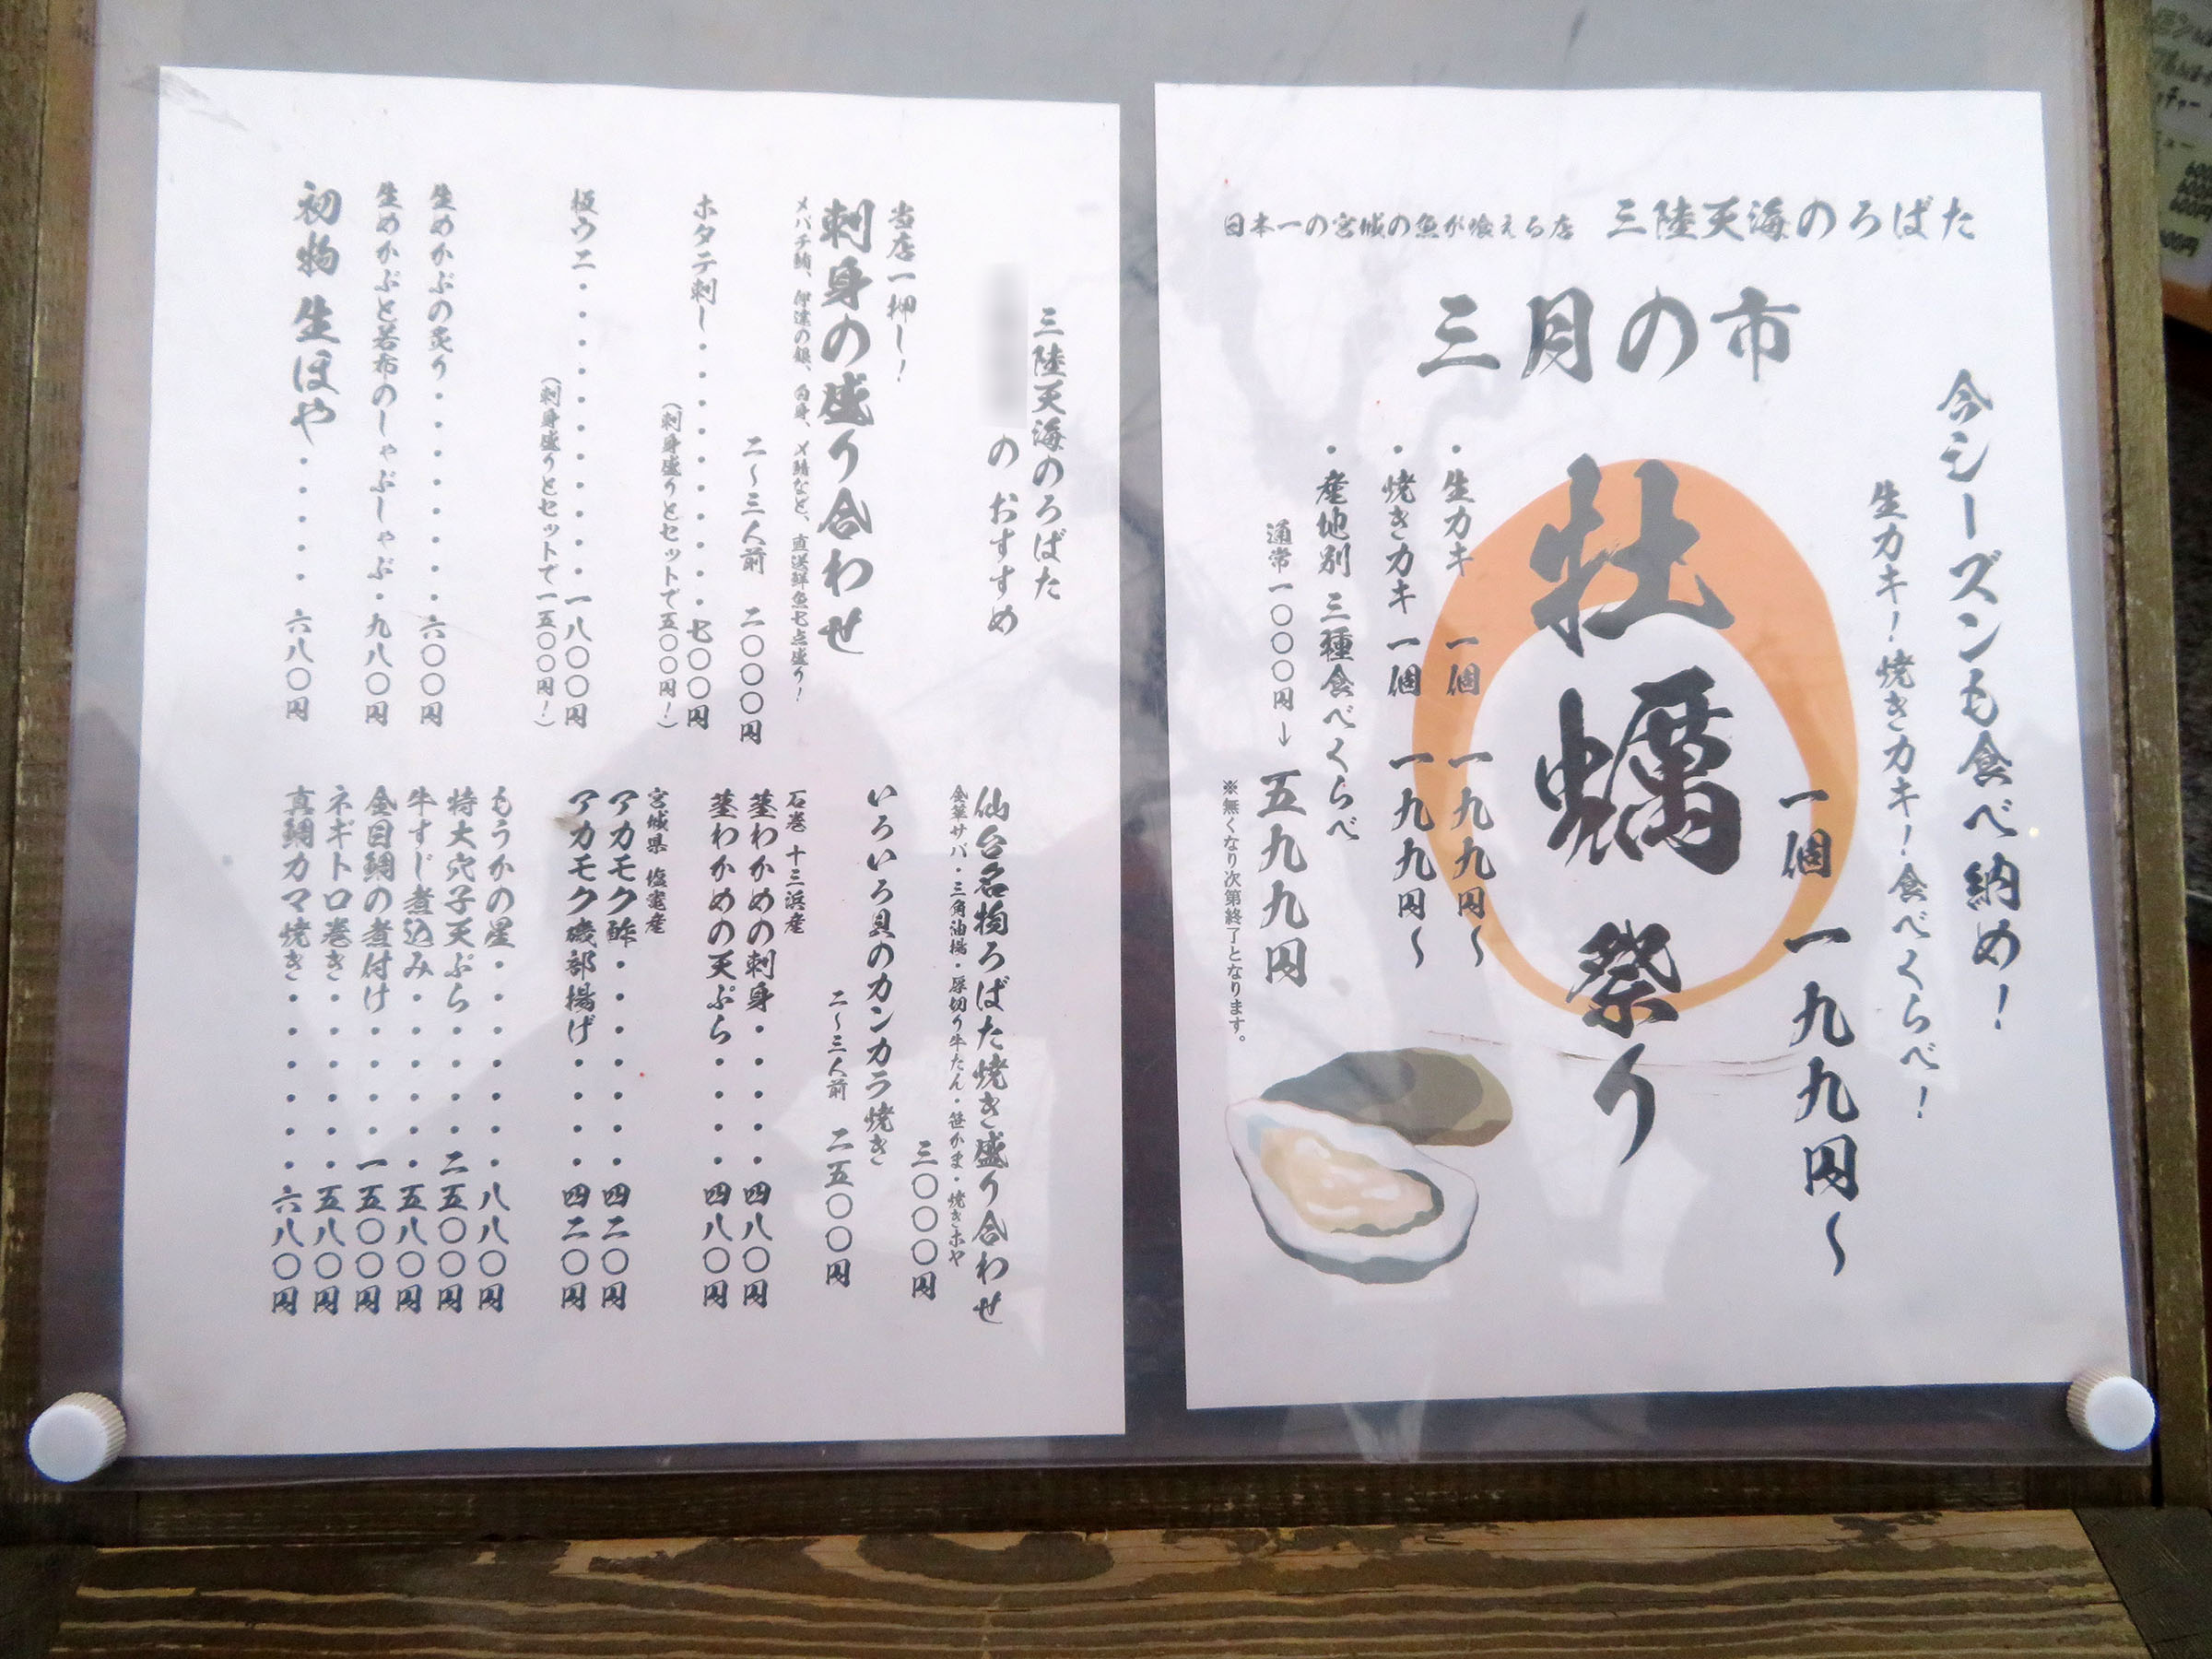 日本一の宮城の魚が喰える店 三陸天海のろばた
三月の市
今シーズンも食べ納め！
生カキ！焼きカキ！食べくらべ！
一個 一九九円～
牡蠣祭り
・生カキ 一個 一九九円～
・焼きカキ 一個 一九九円～
・産地別 三種食べくらべ
通常一〇〇〇円→五九九円
※無くなり次第終了となります。
三陸天海のろばた
の おすすめ
当店一押し！
刺身の盛り合わせ
メバチ鮪、伊達の銀、白身、〆鯖など、直送鮮魚七点盛り！
二～三人前 二〇〇〇円
ホタテ刺し・・・・・・・・七〇〇円
（刺身盛りとセットで五〇〇円！）
板ウニ・・・・・・・・・・一八〇〇円
（刺身盛りとセットで一五〇〇円！）
生めかぶの炙り・・・・・・・六〇〇円
生めかぶと若布のしゃぶしゃぶ・九八〇円
初物 生ほや・・・・・ 六八〇円
仙台名物ろばた焼き盛り合わせ
金華サバ・三角油揚・厚切り牛たん・笹かま・焼きホヤ
三〇〇〇円
いろいろ貝のカンカラ焼き
二～三人前 二五〇〇円
石巻 十三浜産
茎わかめの刺身・・・・・四八〇円
茎わかめの天ぷら・・・・四八〇円
宮城県 塩竈産
アカモク酢・・・・・・・四二〇円
アカモク磯部揚げ・・・・四二〇円
もうかの星・・・・・・・八八〇円
特大穴子天ぷら・・・・二五〇〇円
牛すじ煮込み・・・・・・五八〇円
金目鯛の煮付け・・・・一五〇〇円
ネギトロ巻き・・・・・・五八〇円
真鯛カマ焼き・・・・・・六八〇円